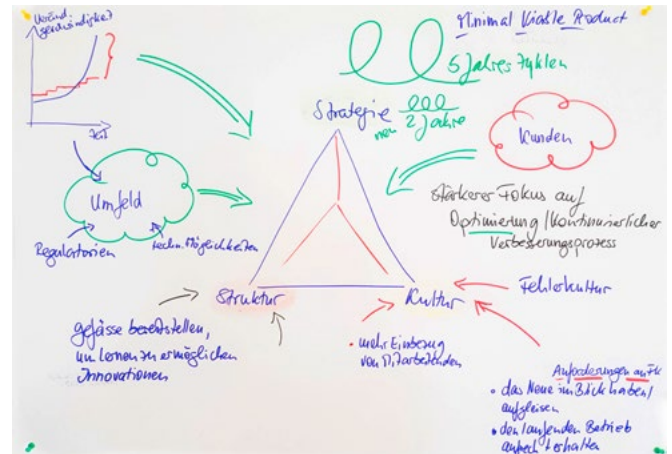 Veränd.
geschwindigkeit
Zeit
Minimal Viable Product
5 Jahres Zyklen
Strategie
neu 2 Jahre
Kunden
Umfeld
Regulatorien
techn. Möglichkeiten
stärkerer Fokus auf
Optimierung/Kontinuierlicher
Verbesserungsprozess
Struktur
Kultur
Fehlerkultur
gefässe bereitstellen,
um Lernen zu ermöglichen
Innovationen
• mehr Einbezug
von Mitarbeitenden
Anforderungen an FK
• das Neue im Blick haben/
aufgleisen
• den laufenden Betrieb
aufrecht erhalten